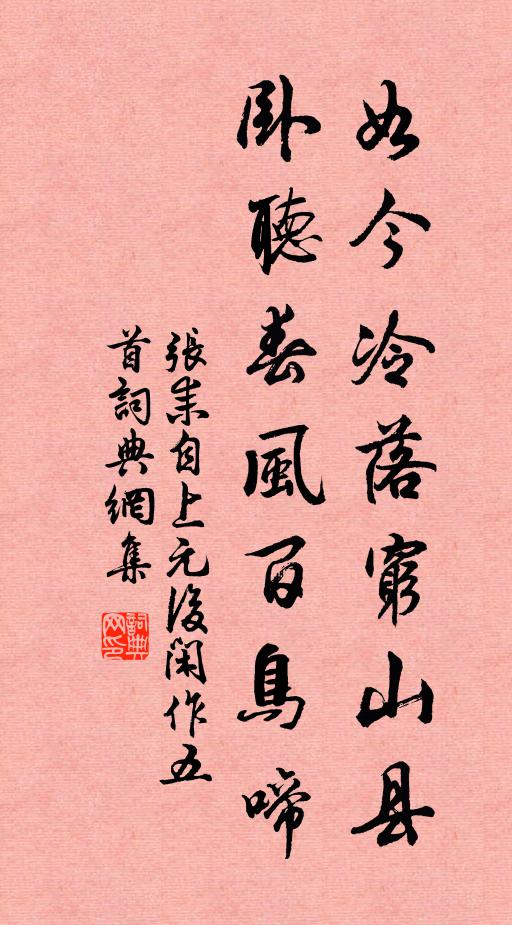 如今冷落窮山县
卧聽春風百鳥啼
張耒自上元後閑作五
首詞典網集
詞典网印